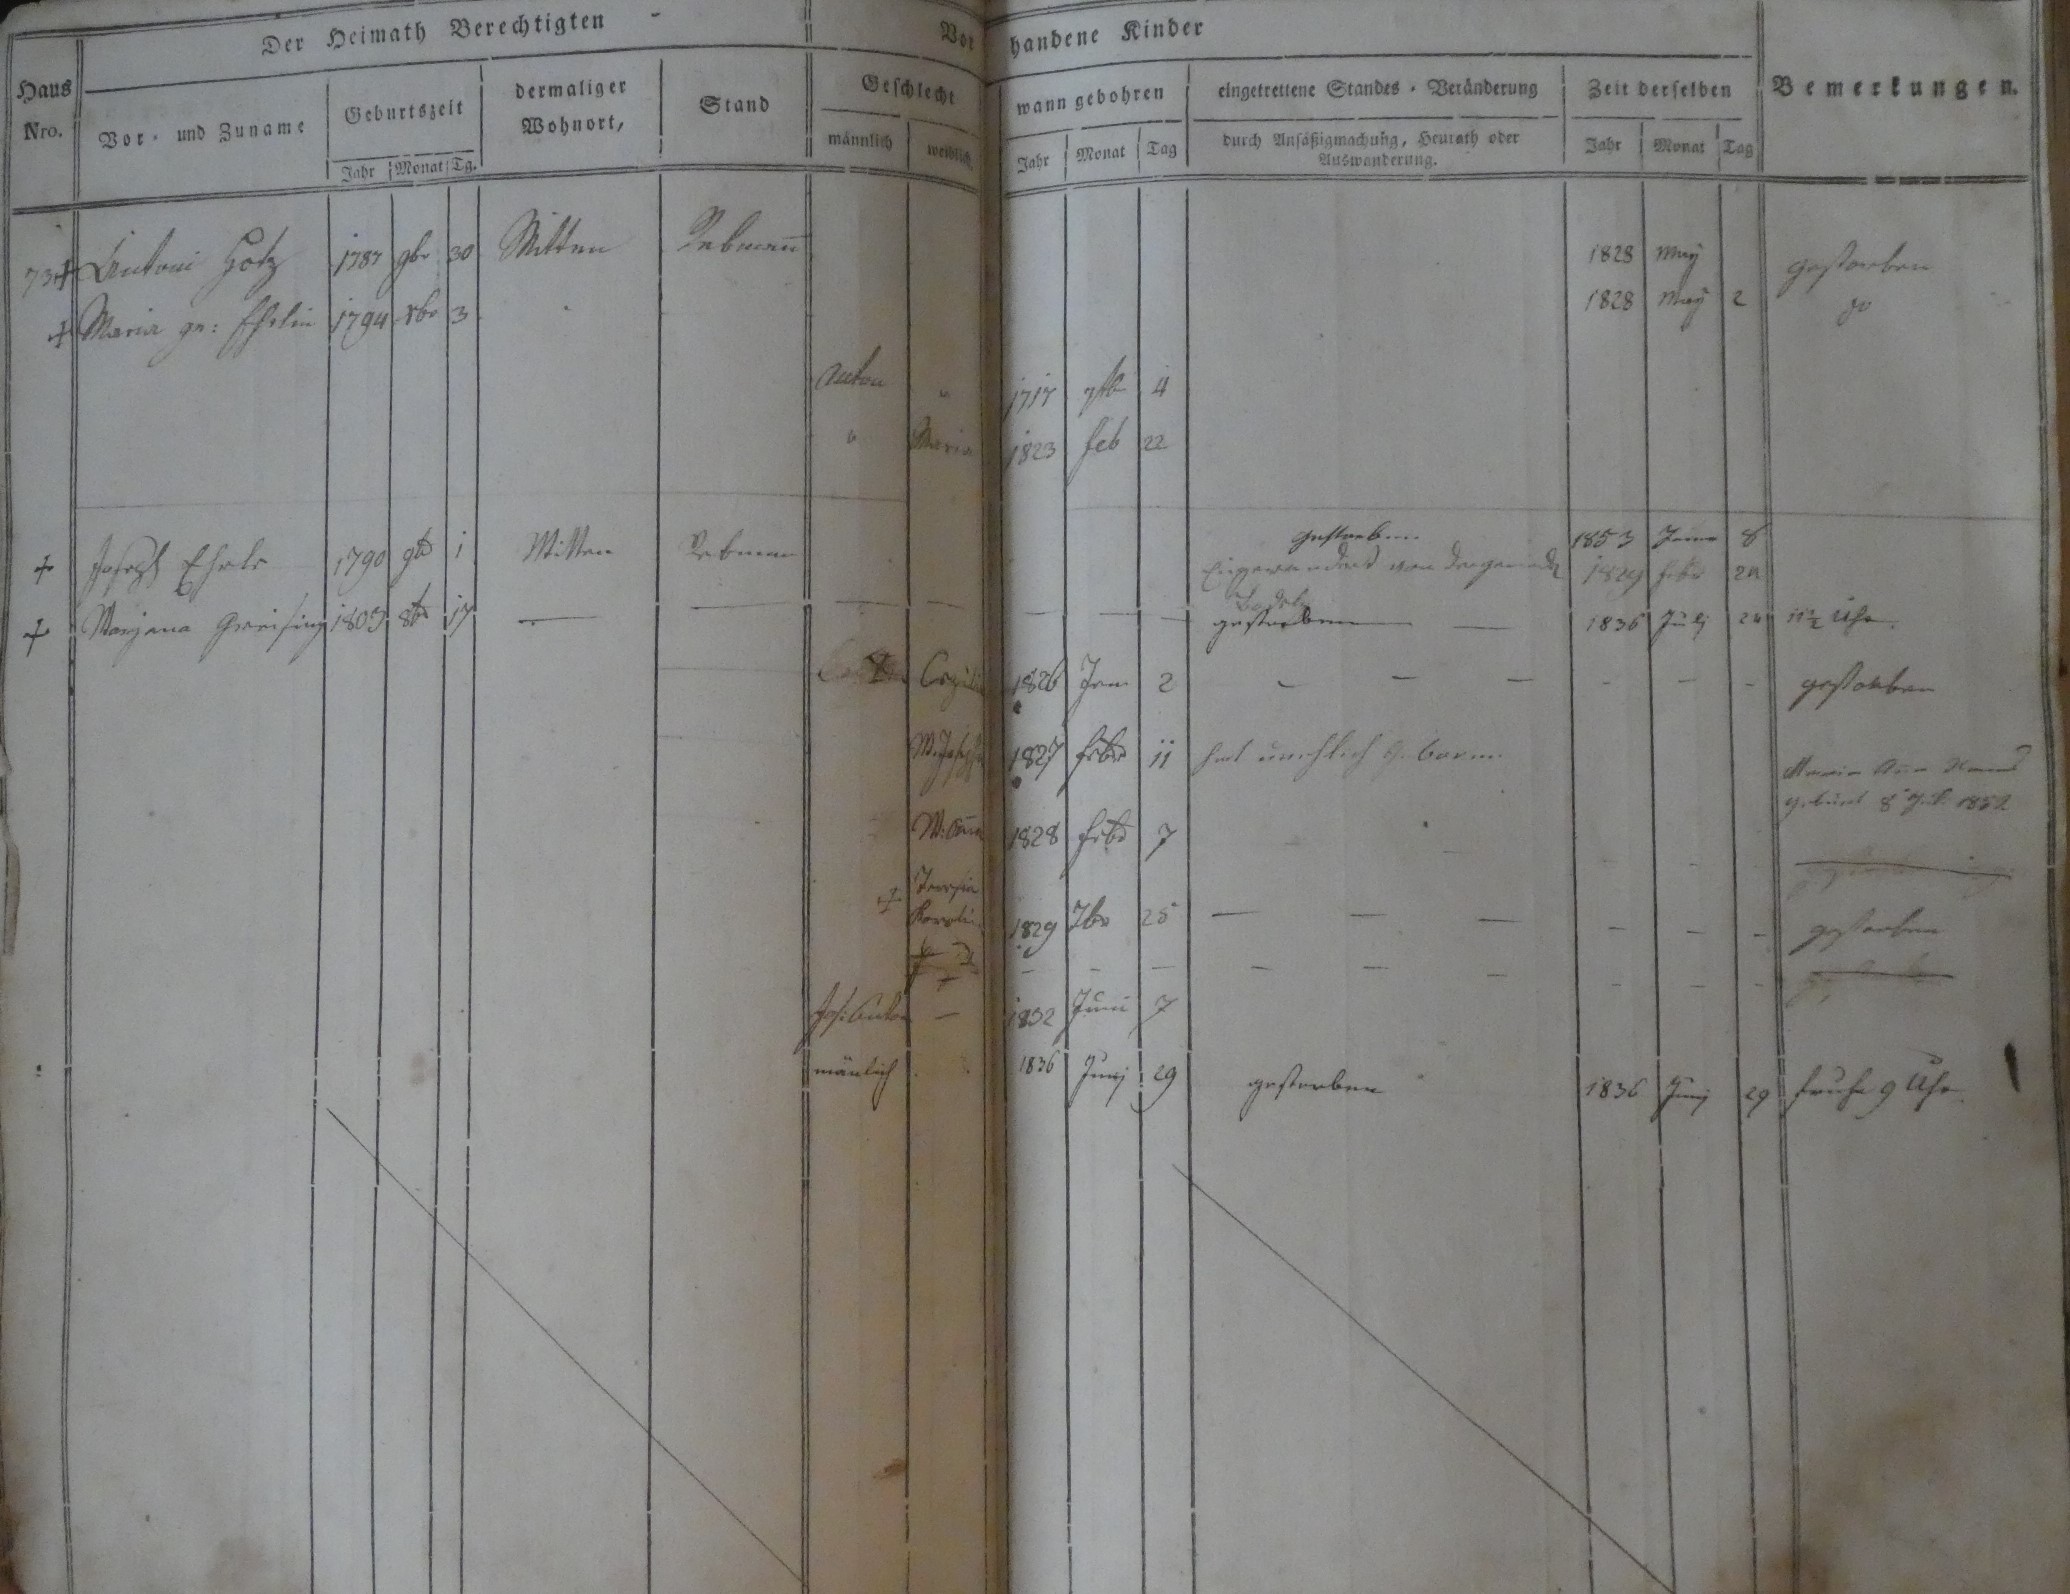 Der Heimath Berechtigten
Vorhandene Kinder
Haus Nro.
Vor- und Zuname
Geburtszeit
Jahr Monat Tg.
dermaliger Wohnort,
Stand
Geschlecht
männlich weiblich
wann gebohren
Jahr Monat Tag
eingetrettene Standes-Veränderung
durch Ansäßigmachung, Heurath oder
Auswanderung.
Zeit derselben
Jahr Monat Tag
Bemerkungen.
73 + Antoni Hotz 1787 9br 30 Mitten Rebmañ 1828 May gestorben
+ Maria ge: Ehrlin 1794 xbr 3 1828 May 2 do
Anton " 1717 4
" Maria 1823 feb 22
gestorben 1853 8
+ Joseph Ehrle 1790 9b 1 Mitten Rebmann Eingewandert von 1829 febr
+ Marjana Greising 1803 8b 17 — gestorben — 1836 Julj 11½ Uhr.
+ Cezilia 1826 Jan 2 — — — - - - gestorben
M: Josepha 1827 febr 11 hat unehlich geboren Maria Anna
geburt 8 Jul. 1852
M: Aña 1828 febr 7
+ Teresia
Karolin 1829 7br 25 — — — - - - gestorben
Jos: Anton — 1832 Juni 7
mänlich 1836 Junj 29 gestorben 1836 Junj 29 fruhe 9 Uhr.